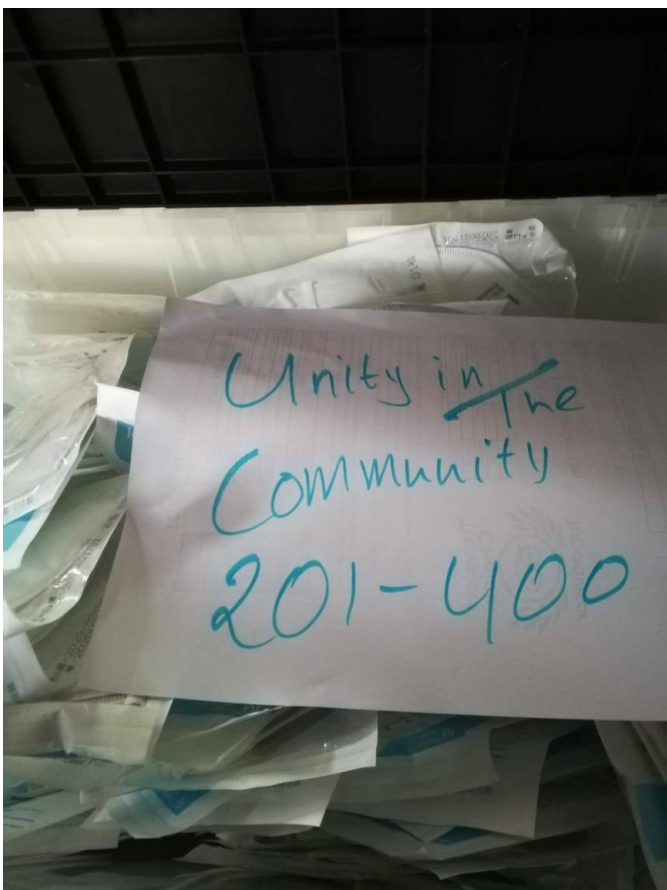 Unity in The
Community
201-400